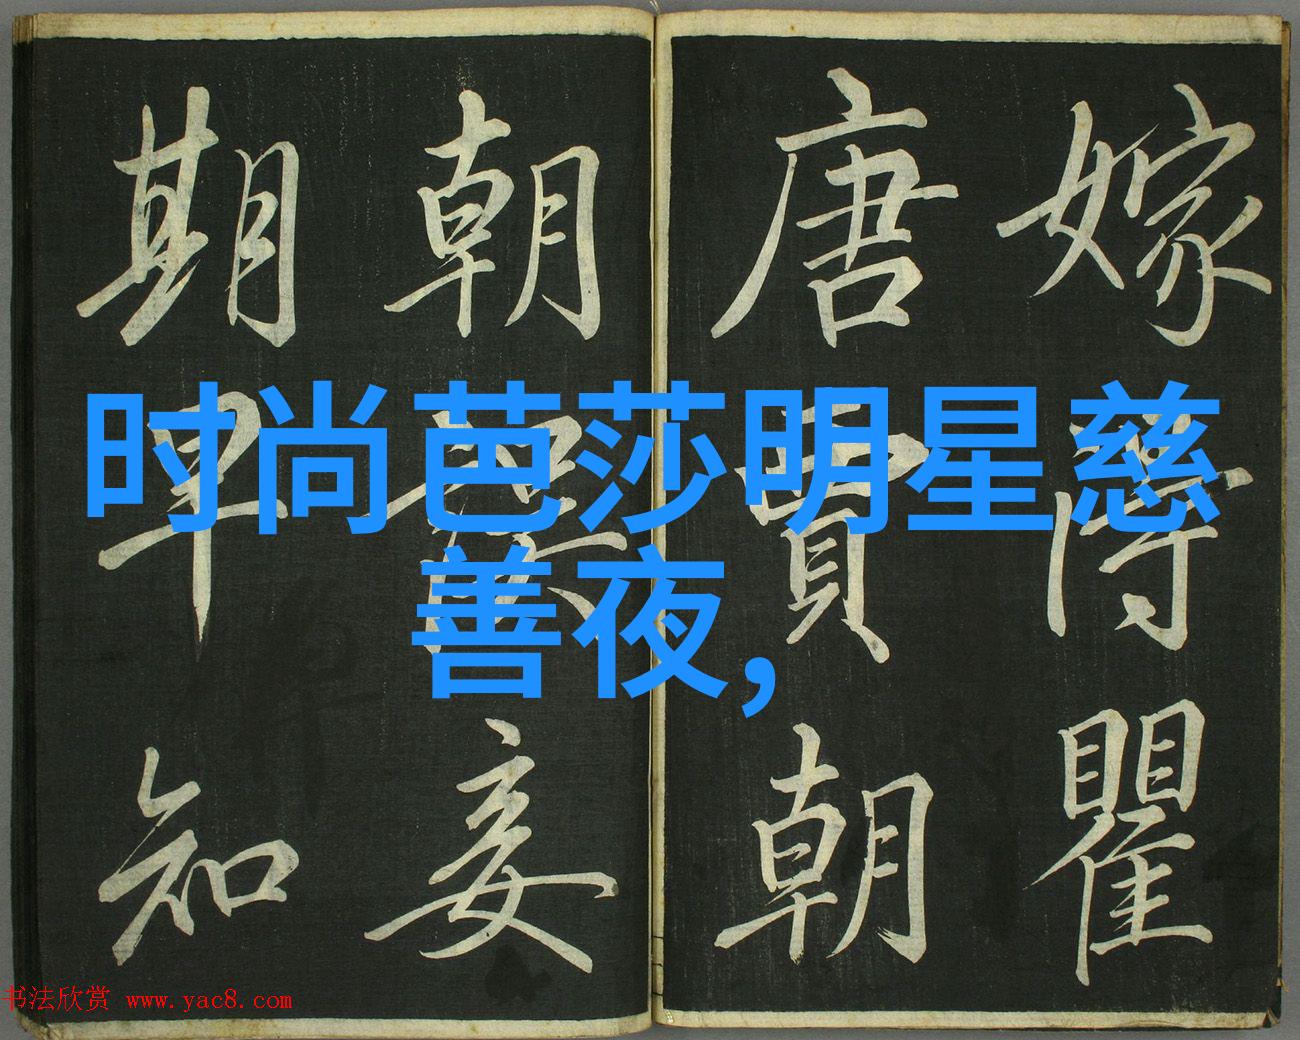 时尚芭莎明星慈
善夜,
嫁得瞿
唐賈朝
朝妾
期早知
书法欣赏 www.yac8.com